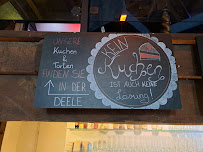 UNSERE
Kuchen
&
Torten
FINDEN SIE
IN DER
DEELE
KEIN
Kuchen
IST AUCH KEINE
Lösung!